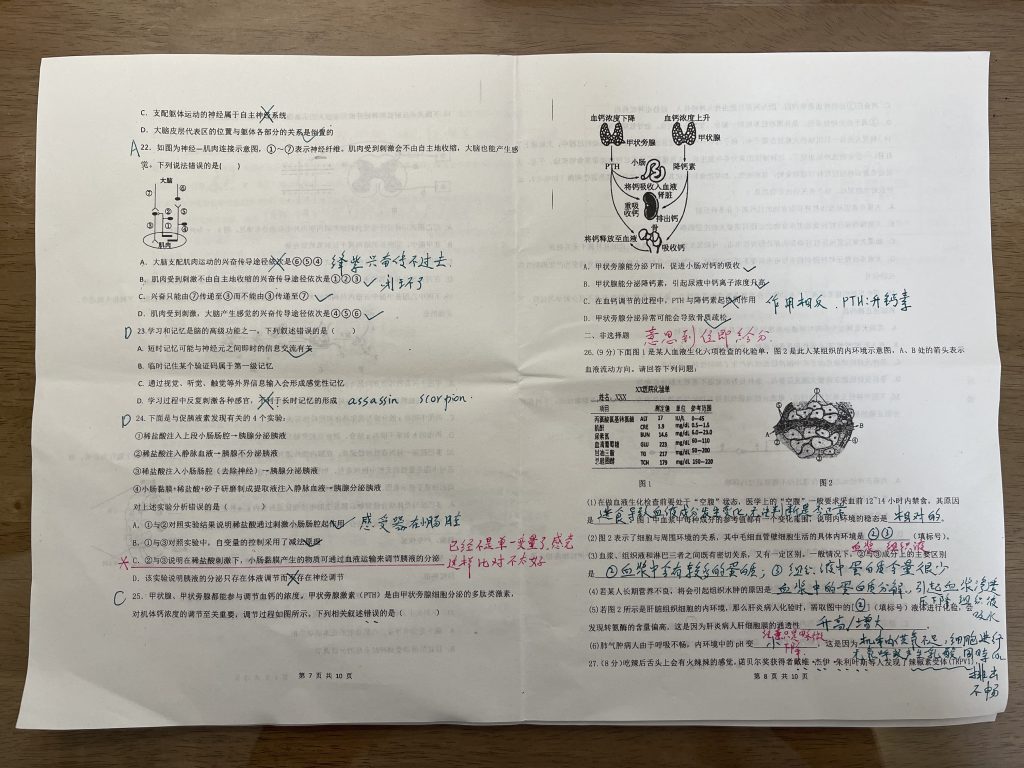 C. 支配躯体运动的神经属于自主神经系统
D. 大脑皮层代表区的位置与躯体各部分的关系是倒置的
A 22. 如图为神经—肌肉连接示意图，①～⑦表示神经纤维。肌肉受到刺激会不由自主地收缩，大脑也能产生感
觉。下列说法错误的是( )
大脑
⑦ ⑥
③ ② ① ⑤ ④
肌肉
A. 大脑支配肌肉运动的兴奋传导途径依次是⑥⑤④
B. 肌肉受到刺激不由自主地收缩的兴奋传导途径依次是①②③
C. 兴奋只能由⑦传递至③而不能由③传递至⑦
D. 肌肉受到刺激，大脑产生感觉的兴奋传导途径依次是④⑤⑥
D 23.学习和记忆是脑的高级功能之一，下列叙述错误的是( )
A. 短时记忆可能与神经元之间即时的信息交流有关
B. 临时记住某个验证码属于第一级记忆
C. 通过视觉、听觉、触觉等外界信息输入会形成感觉性记忆
D. 学习过程中反复刺激各种感官，不利于长时记忆的形成 assassin scorpion.
D 24. 下面是与促胰液素发现有关的 4 个实验：
①稀盐酸注入上段小肠肠腔→胰腺分泌胰液
②稀盐酸注入静脉血液→胰腺不分泌胰液
③稀盐酸注入小肠肠腔（去除神经）→胰腺分泌胰液
④小肠黏膜+稀盐酸+砂子研磨制成提取液注入静脉血液→胰腺分泌胰液
对上述实验分析错误的是( )
A. ①与②对照实验结果说明稀盐酸通过刺激小肠肠腔起作用 感受器在肠腔
B. ①与③对照实验中，自变量的控制采用了减法原理
C. ②与③说明在稀盐酸刺激下，小肠黏膜产生的物质可通过血液运输来调节胰液的分泌
已经不是单一变量了,感觉
这样比对不太好
D. 该实验说明胰液的分泌只存在体液调节而不存在神经调节
C 25. 甲状腺、甲状旁腺都能参与调节血钙的浓度。甲状旁腺激素（PTH）是由甲状旁腺细胞分泌的多肽类激素，
对机体钙浓度的调节至关重要，调节过程如图所示，下列相关叙述错误的是( )
第 7 页 共 10 页
血钙浓度下降 血钙浓度上升
甲状旁腺 甲状腺
PTH 小肠 降钙素
将钙吸收入血液
肾脏
重吸收钙 排出钙
骨
将钙释放至血液 吸收钙
A. 甲状旁腺能分泌 PTH，促进小肠对钙的吸收
B. 甲状腺能分泌降钙素，引起尿液中钙离子浓度升高
C. 在血钙调节的过程中，PTH 与降钙素起协同作用 作用相反. PTH:升钙素
D. 甲状旁腺分泌异常可能会导致骨质疏松
二、非选择题 意思到位即给分.
26. (9 分)下面图 1 是某人血液生化六项检查的化验单，图 2 是此人某组织的内环境示意图，A、B 处的箭头表示
血液流动方向。请回答下列问题：
XX医院化验单
姓名：XXX
项目 测定值 单位 参考范围
丙氨酸氨基转氨酶 ALT 17 IU/L 0—45
肌酐 CRE 1.9 mg/dL 0.5—1.5
尿素氮 BUN 14.6 mg/dL 6.0—23.0
血清葡萄糖 GLU 223 mg/dL 60—110
甘油三酯 TG 217 mg/dL 50—200
总胆固醇 TCH 179 mg/dL 150—220
图 1
A B
图 2
(1)在做血液生化检查前要处于“空腹”状态，医学上的“空腹”一般要求采血前 12~14 小时内禁食，其原因
是 进食导致血液成分发生变化,无法判断是否正常 图 1 中血浆中每种成分的参考值都有一个变化范围，说明内环境的稳态是 相对的.
(2)图 2 表示了细胞与周围环境的关系，其中毛细血管壁细胞生活的具体内环境是 ②③ (填标号)。
血浆 组织液
(3)血浆、组织液和淋巴三者之间既有密切关系，又有一定区别，一般情况下，②与③成分上的主要区别
是 ②血浆中含有较多的蛋白质；③组织液中蛋白质含量很少
(4)若某人长期营养不良，将会引起组织水肿的原因是 血浆中的蛋白质分解，引起血浆渗透
压下降,组织液
吸水
(5)若图 2 所示是肝脏组织细胞的内环境，那么肝炎病人化验时，需取图中的[②](填标号)液体进行化验，会
发现转氨酶的含量偏高，这是因为肝炎病人肝细胞膜的通透性 升高/增大
(6)肺气肿病人由于呼吸不畅，内环境中的 pH 变 小 下降 ，这是因为 机体内供氧不足,细胞进行
无氧呼吸产生乳酸,同时CO₂
排出
不畅
27. (8 分)吃辣后舌头上会有火辣辣的感觉。诺贝尔奖获得者戴维·杰伊·朱利叶斯等人发现了辣椒素受体(TRPV1)
第 8 页 共 10 页